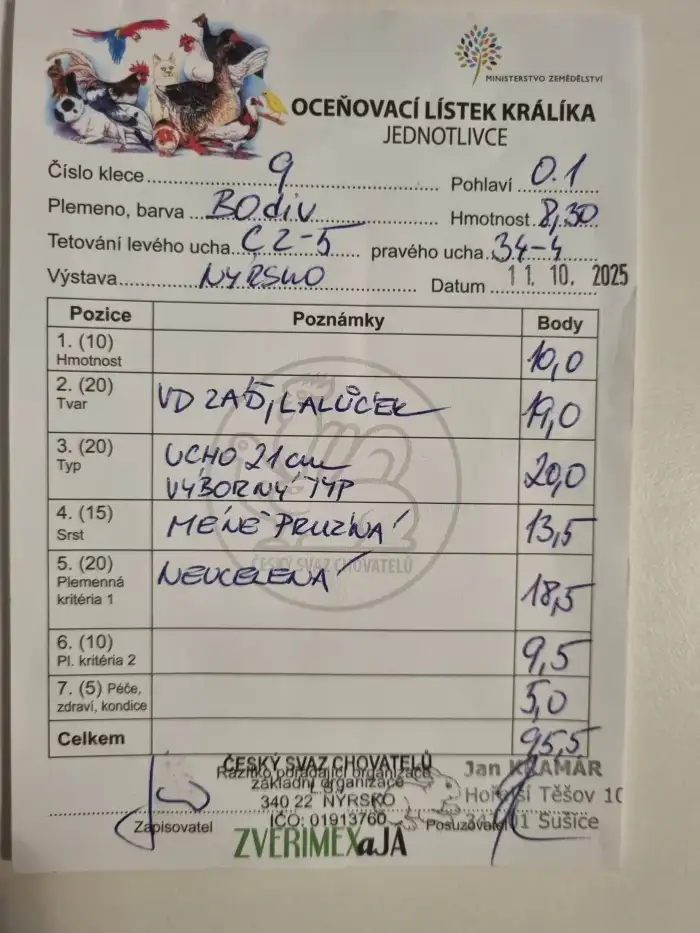 MINISTERSTVO ZEMĚDĚLSTVÍ
OCEŇOVACÍ LÍSTEK KRÁLÍKA
JEDNOTLIVCE
Číslo klece 9 Pohlaví 0.1
Plemeno, barva BOdiV Hmotnost 8,30
Tetování levého ucha C2-5 pravého ucha 34-4
Výstava NÝRSKO Datum 11. 10. 2025
Pozice Poznámky Body
1. (10) Hmotnost 10,0
2. (20) Tvar VD ZAĎ, LALŮČEK 19,0
3. (20) Typ UCHO 21 cm 20,0
VÝBORNÝ TYP
4. (15) Srst MÉNĚ PRUŽNÁ 13,5
5. (20) Plemenná kritéria 1 NEUCELENÁ 18,5
6. (10) Pl. kritéria 2 9,5
7. (5) Péče, zdraví, kondice 5,0
Celkem 95,5
ČESKÝ SVAZ CHOVATELŮ
ČESKÝ SVAZ CHOVATELŮ
Razítko pořádající organizace
základní organizace
340 22 NÝRSKO
IČO: 01913760
Jan KRAMÁR
Těšov 10
Sušice
Zapisovatel Posuzovatel
ZVERIMEXaJÁ